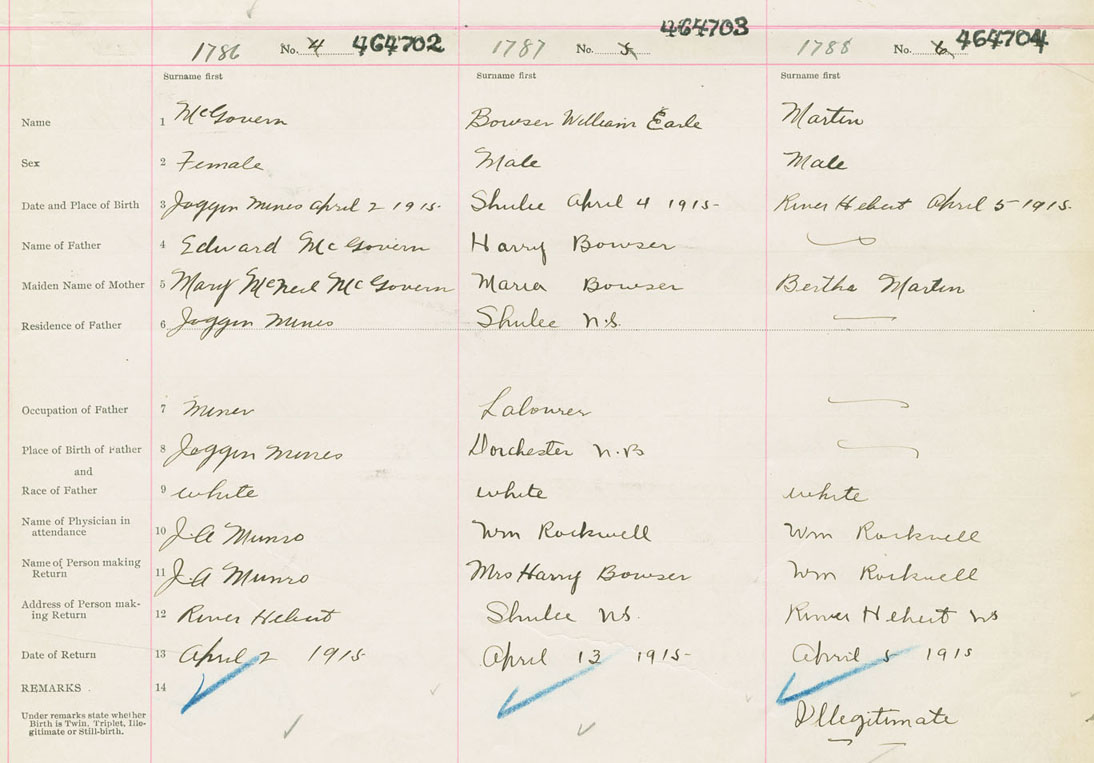 1786 No. 4 464702 1787 No. 5 464703 1788 No. 6 464704
Surname first Surname first Surname first
Name 1 McGovern Bowser William Earle Martin
Sex 2 Female Male Male
Date and Place of Birth 3 Joggin Mines April 2 1915- Shulee April 4 1915- River Hebert April 5 1915.
Name of Father 4 Edward McGovern Harry Bowser
Maiden Name of Mother 5 Mary McNeil McGovern Maria Bowser Bertha Martin
Residence of Father 6 Joggin Mines Shulee N.S.
Occupation of Father 7 Miner Labourer
Place of Birth of Father 8 Joggin Mines Dorchester N.B
and
Race of Father 9 white white white
Name of Physician in
attendance 10 J.A Munro Wm Rockwell Wm Rockwell
Name of Person making
Return 11 J.A Munro Mrs Harry Bowser Wm Rockwell
Address of Person mak-
ing Return 12 River Hebert Shulee NS. River Hebert NS
Date of Return 13 April 2 1915 April 13 1915- April 5 1915
REMARKS . 14
Under remarks state whether
Birth is Twin, Triplet, Ille-
gitimate or Still-birth.
Illegitimate